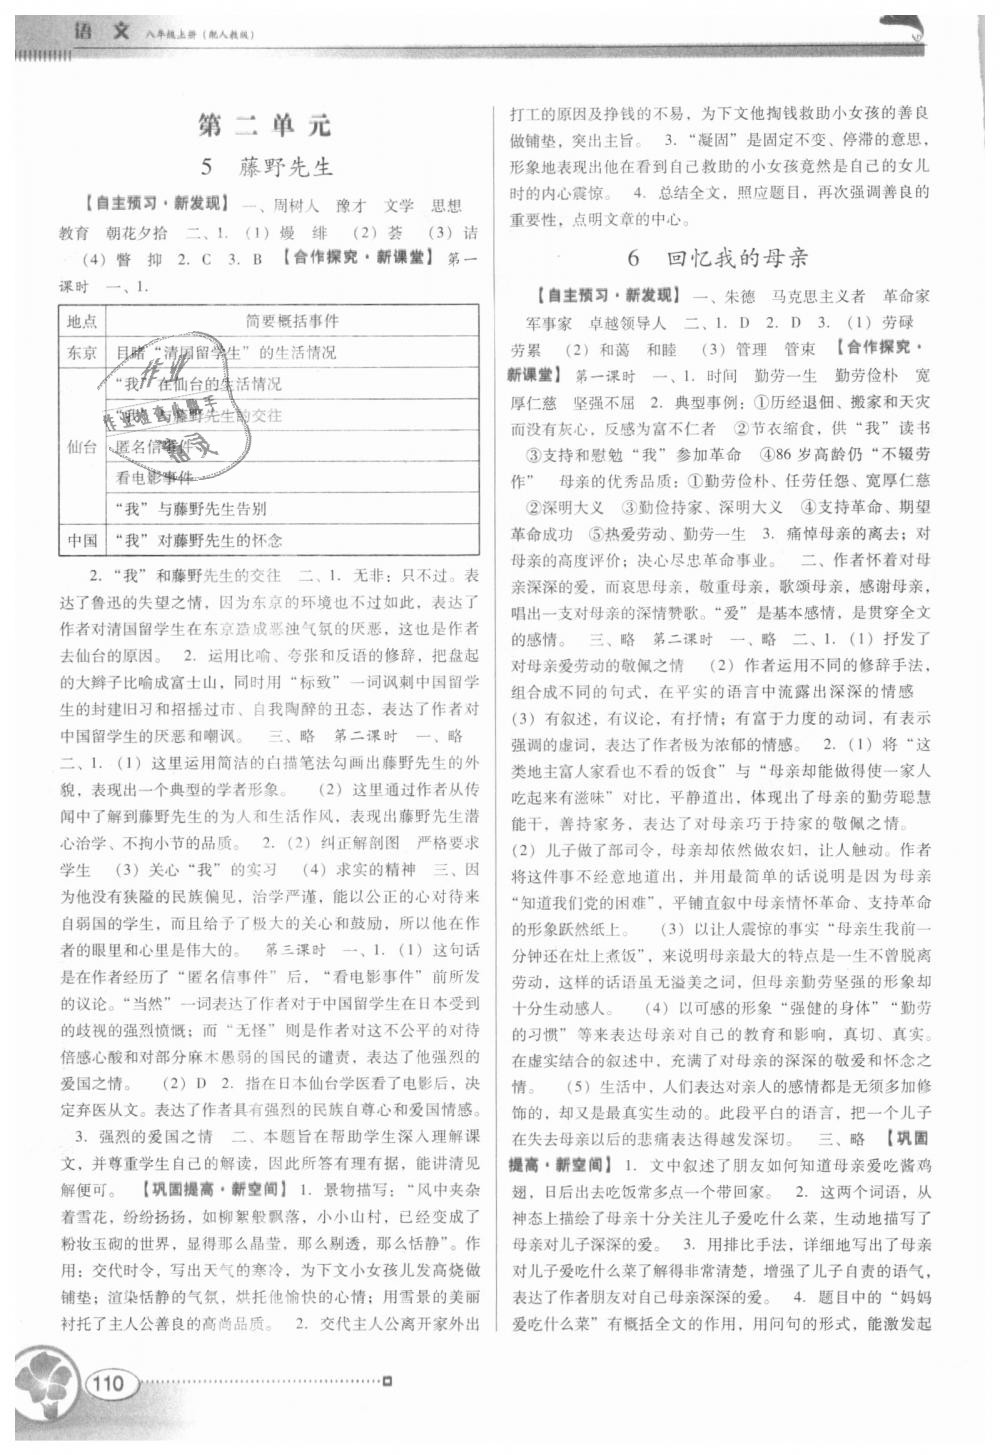 语 文 八年级上册（配人教版）
第二单元
5 藤野先生
【自主预习·新发现】 一、周树人 豫才 文学 思想
教育 朝花夕拾 二、1. （1）熳 绯 （2）荟 （3）诘
（4）瞥 抑 2. C 3. B 【合作探究·新课堂】 第一
课时 一、1.
地点 简要概括事件
东京 目睹“清国留学生”的生活情况
“我”在仙台的生活情况
“我”与藤野先生的交往
仙台 匿名信事件
看电影事件
“我”与藤野先生告别
中国 “我”对藤野先生的怀念
2. “我”和藤野先生的交往 二、1. 无非：只不过。表
达了鲁迅的失望之情，因为东京的环境也不过如此，表达了
作者对清国留学生在东京造成恶浊气氛的厌恶，这也是作者
去仙台的原因。 2. 运用比喻、夸张和反语的修辞，把盘起
的大辫子比喻成富士山，同时用“标致”一词讽刺中国留学
生的封建旧习和招摇过市、自我陶醉的丑态，表达了作者对
中国留学生的厌恶和嘲讽。 三、略 第二课时 一、略
二、1.（1）这里运用简洁的白描笔法勾画出藤野先生的外
貌，表现出一个典型的学者形象。 （2）这里通过作者从传
闻中了解到藤野先生的为人和生活作风，表现出藤野先生潜
心治学、不拘小节的品质。 2.（2）纠正解剖图 严格要求
学生 （3）关心“我”的实习 （4）求实的精神 三、因
为他没有狭隘的民族偏见，治学严谨，能以公正的心对待来
自弱国的学生，而且给予了极大的关心和鼓励，所以他在作
者的眼里和心里是伟大的。 第三课时 一、1.（1）这句话
是在作者经历了“匿名信事件”后，“看电影事件”前所发
的议论。“当然”一词表达了作者对于中国留学生在日本受到
的歧视的强烈愤慨；而“无怪”则是作者对这不公平的对待
倍感心酸和对部分麻木愚弱的国民的谴责，表达了他强烈的
爱国之情。 （2）D 2. 指在日本仙台学医看了电影后，决
定弃医从文。表达了作者具有强烈的民族自尊心和爱国情感。
3. 强烈的爱国之情 二、本题旨在帮助学生深入理解课
文，并尊重学生自己的解读，因此所答有理有据，能讲清见
解便可。 【巩固提高·新空间】 1. 景物描写：“风中夹杂
着雪花，纷纷扬扬，如柳絮般飘落，小小山村，已经变成了
粉妆玉砌的世界，显得那么晶莹，那么剔透，那么恬静”。作
用：交代时令，写出天气的寒冷，为下文小女孩儿发高烧做
铺垫；渲染恬静的气氛，烘托他愉快的心情；用雪景的美丽
衬托了主人公善良的高尚品质。 2. 交代主人公离开家外出
打工的原因及挣钱的不易，为下文他掏钱救助小女孩的善良
做铺垫，突出主旨。 3. “凝固”是固定不变、停滞的意思，
形象地表现出他在看到自己救助的小女孩竟然是自己的女儿
时的内心震惊。 4. 总结全文，照应题目，再次强调善良的
重要性，点明文章的中心。
6 回忆我的母亲
【自主预习·新发现】 一、朱德 马克思主义者 革命家
军事家 卓越领导人 二、1. D 2. D 3. （1）劳碌
劳累 （2）和蔼 和睦 （3）管理 管束 【合作探究·
新课堂】 第一课时 一、1. 时间 勤劳一生 勤劳俭朴 宽
厚仁慈 坚强不屈 2. 典型事例：①历经退佃、搬家和天灾
而没有灰心，反感为富不仁者 ②节衣缩食，供“我”读书
③支持和慰勉“我”参加革命 ④86 岁高龄仍“不辍劳
作” 母亲的优秀品质：①勤劳俭朴、任劳任怨、宽厚仁慈
②深明大义 ③勤俭持家、深明大义 ④支持革命、期望
革命成功 ⑤热爱劳动、勤劳一生 3. 痛悼母亲的离去；对
母亲的高度评价；决心尽忠革命事业。 二、作者怀着对母
亲深深的爱，而哀思母亲，敬重母亲，歌颂母亲，感谢母亲，
唱出一支对母亲的深情赞歌。“爱”是基本感情，是贯穿全文
的感情。 三、略 第二课时 一、略 二、1.（1）抒发了
对母亲爱劳动的敬佩之情 （2）作者运用不同的修辞手法，
组合成不同的句式，在平实的语言中流露出深深的情感
（3）有叙述，有议论，有抒情；有富于力度的动词，有表示
强调的虚词，表达了作者极为浓郁的情感。 2.（1）将“这
类地主富人家看也不看的饭食”与“母亲却能做得使一家人
吃起来有滋味”对比，平静道出，体现出了母亲的勤劳聪慧
能干，善持家务，表达了对母亲巧于持家的敬佩之情。
（2）儿子做了部司令，母亲却依然做农妇，让人触动。作者
将这件事不经意地道出，并用最简单的话说明是因为母亲
“知道我们党的困难”，平铺直叙中母亲情怀革命、支持革命
的形象跃然纸上。 （3）以让人震惊的事实“母亲生我前一
分钟还在灶上煮饭”，来说明母亲最大的特点是一生不曾脱离
劳动，这样的话语虽无溢美之词，但母亲勤劳坚强的形象却
十分生动感人。 （4）以可感的形象“强健的身体”“勤劳
的习惯”等来表达母亲对自己的教育和影响，真切、真实。
在虚实结合的叙述中，充满了对母亲的深深的敬爱和怀念之
情。 （5）生活中，人们表达对亲人的感情都是无须多加修
饰的，却又是最真实生动的。此段平白的语言，把一个儿子
在失去母亲以后的悲痛表达得越发深切。 三、略 【巩固
提高·新空间】 1. 文中叙述了朋友如何知道母亲爱吃酱鸡
翅，日后出去吃饭常多点一个带回家。 2. 这两个词语，从
神态上描绘了母亲十分关注儿子爱吃什么菜，生动地描写了
母亲对儿子深深的爱。 3. 用排比手法，详细地写出了母亲
对儿子爱吃什么菜了解得非常清楚，增强了儿子自责的语气，
表达了作者朋友对自己母亲深深的爱。 4. 题目中的“妈妈
爱吃什么菜”有概括全文的作用，用问句的形式，能激发起
110